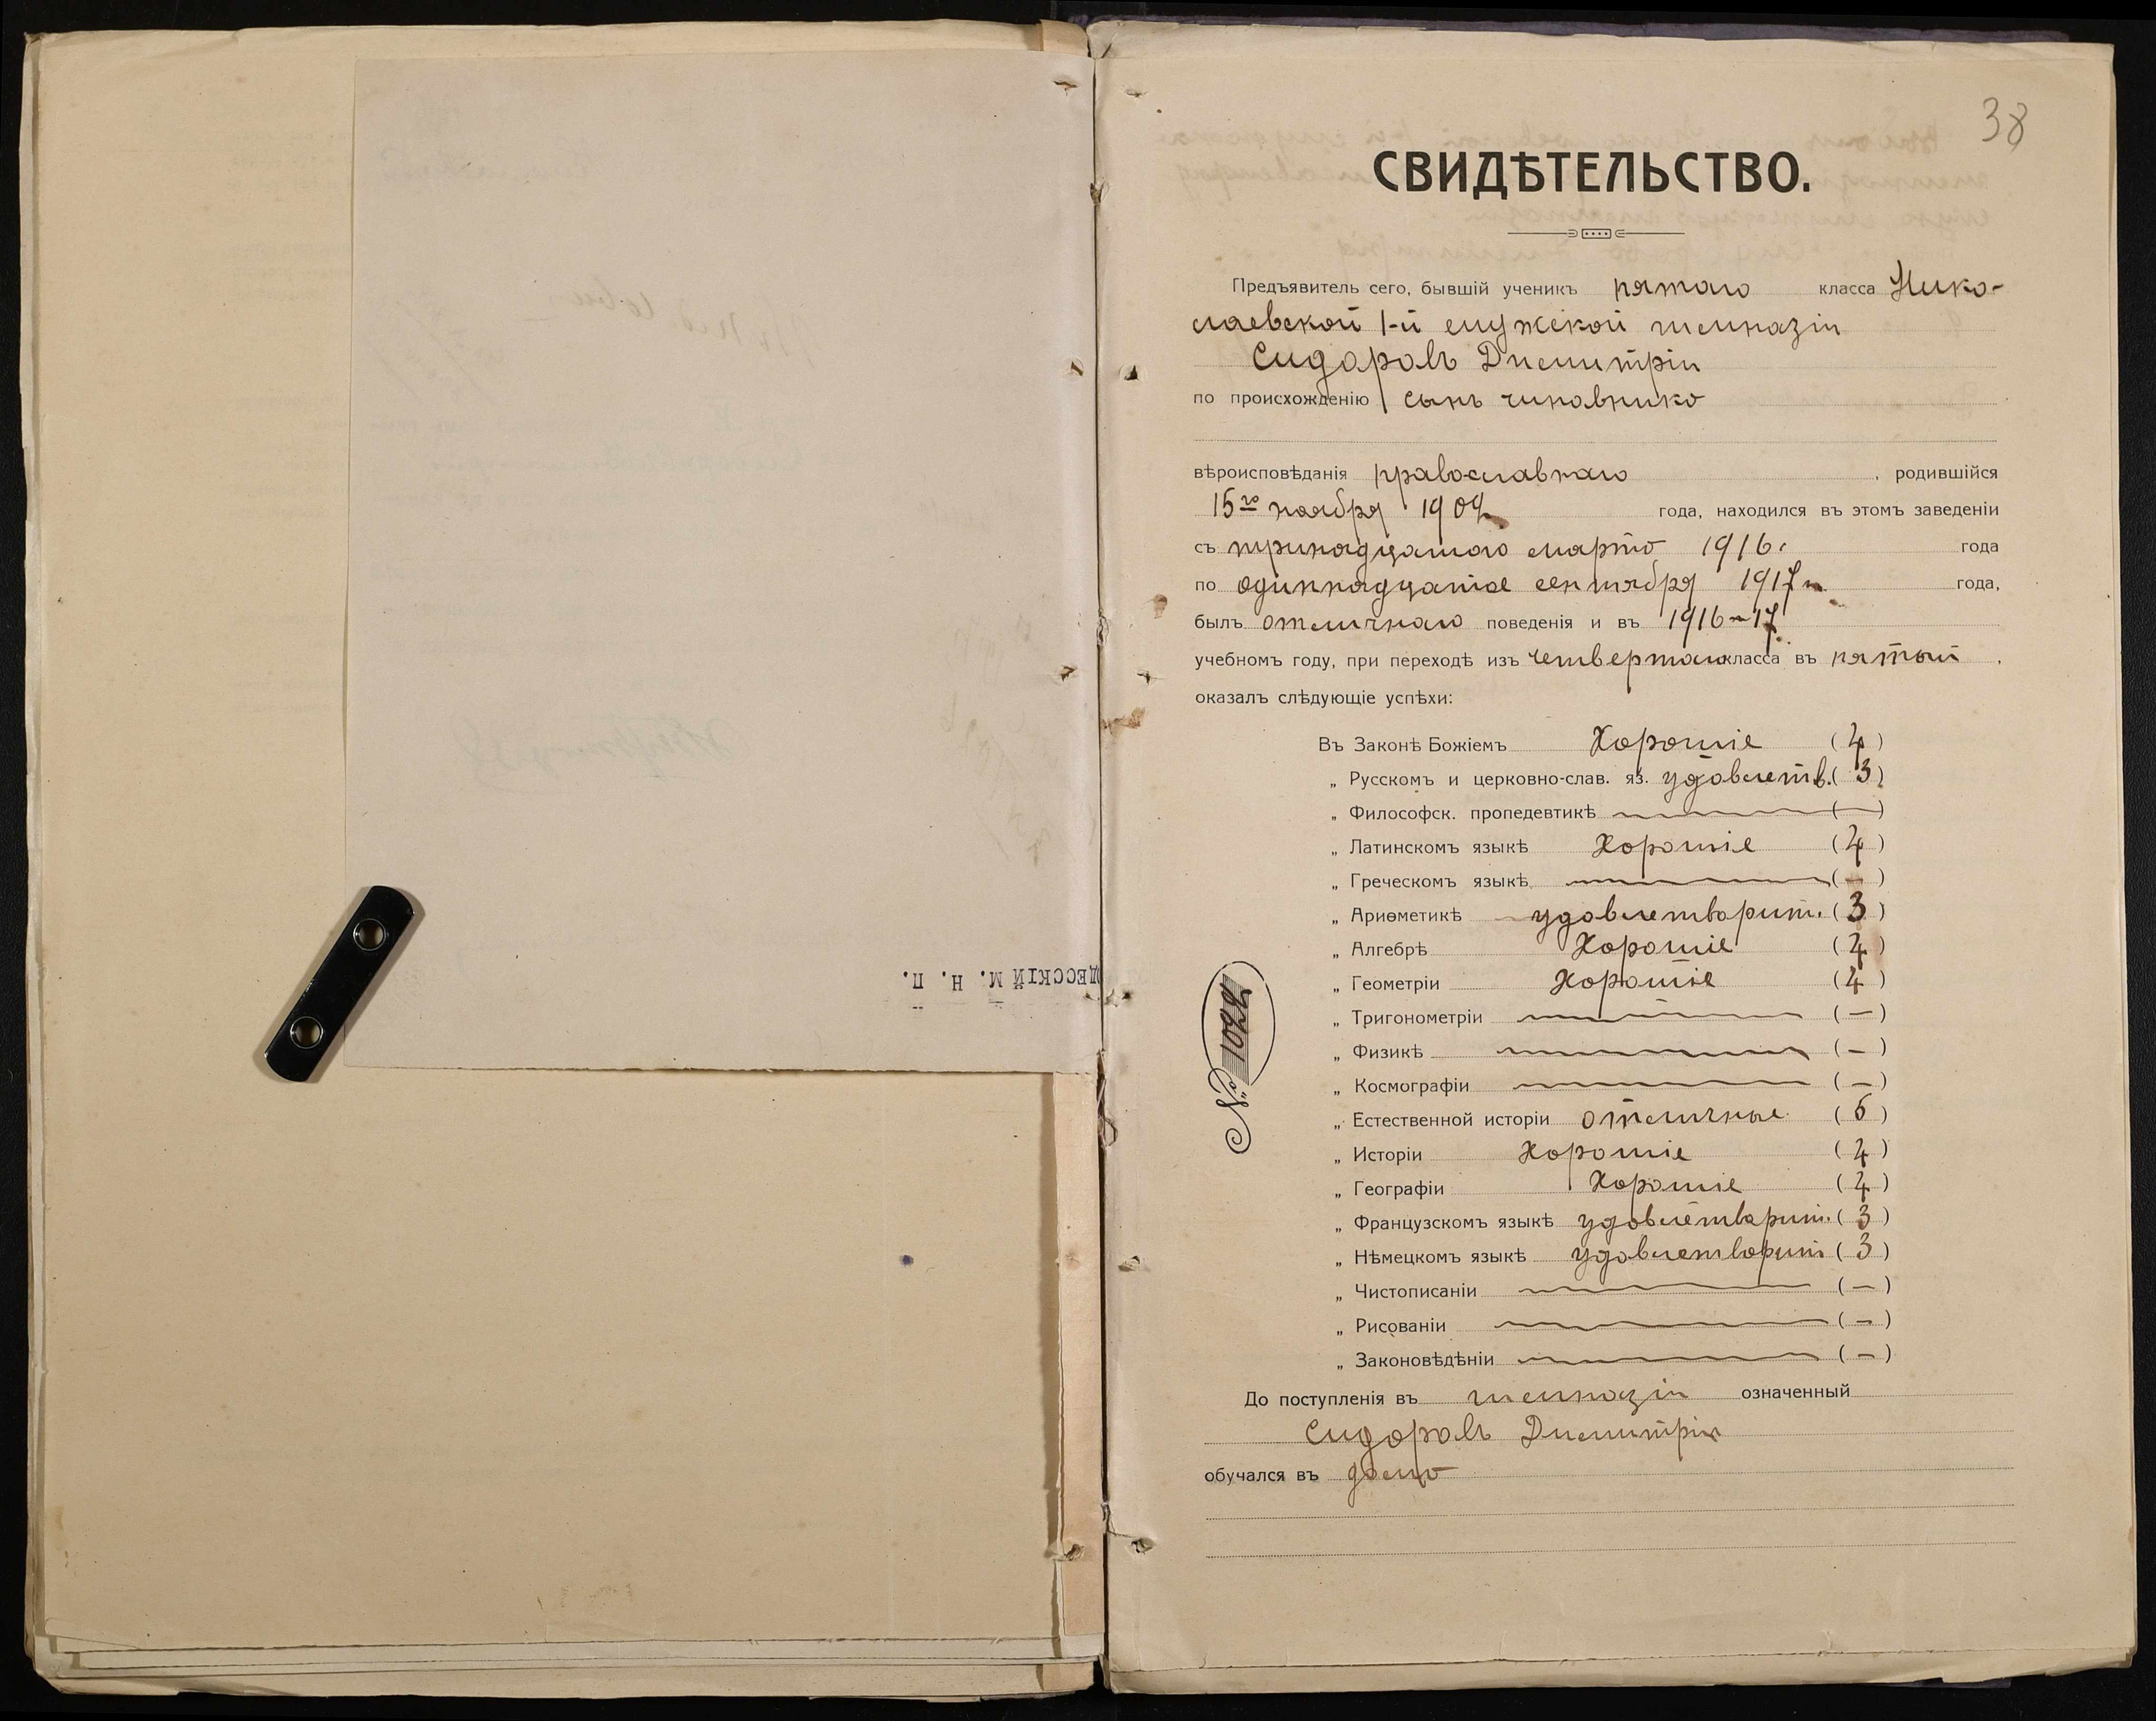 38
СВИДѢТЕЛЬСТВО.
Предъявитель сего, бывшій ученикъ пятаго класса Нико-
лаевской 1-й мужской гимназіи
Сидоровъ Димитрій
по происхожденію сынъ чиновника
вѣроисповѣданія православнаго, родившійся
15го ноября 1902 года, находился въ этомъ заведеніи
съ тринадцатаго марта 1916 года
по одиннадцатое сентября 1917 года,
былъ отличнаго поведенія и въ 1916-17
учебномъ году, при переходѣ изъ четвертаго класса въ пятый,
оказалъ слѣдующіе успѣхи:
Въ Законѣ Божіемъ Хорошіе (4)
„ Русскомъ и церковно-слав. яз. удовлетв. (3)
„ Философск. пропедевтикѣ (—)
„ Латинскомъ языкѣ Хорошіе (4)
„ Греческомъ языкѣ (—)
„ Ариѳметикѣ удовлетворит. (3)
„ Алгебрѣ Хорошіе (4)
„ Геометріи Хорошіе (4)
„ Тригонометріи (—)
„ Физикѣ (—)
„ Космографіи (—)
„ Естественной исторіи отличные (5)
„ Исторіи Хорошіе (4)
„ Географіи Хорошіе (4)
„ Французскомъ языкѣ удовлетворит. (3)
„ Нѣмецкомъ языкѣ удовлетворит (3)
„ Чистописаніи (—)
„ Рисованіи (—)
„ Законовѣдѣніи (—)
До поступленія въ гимназію означенный
Сидоровъ Димитрій
обучался въ дома
ДЕССКІЙ М. Н. П.